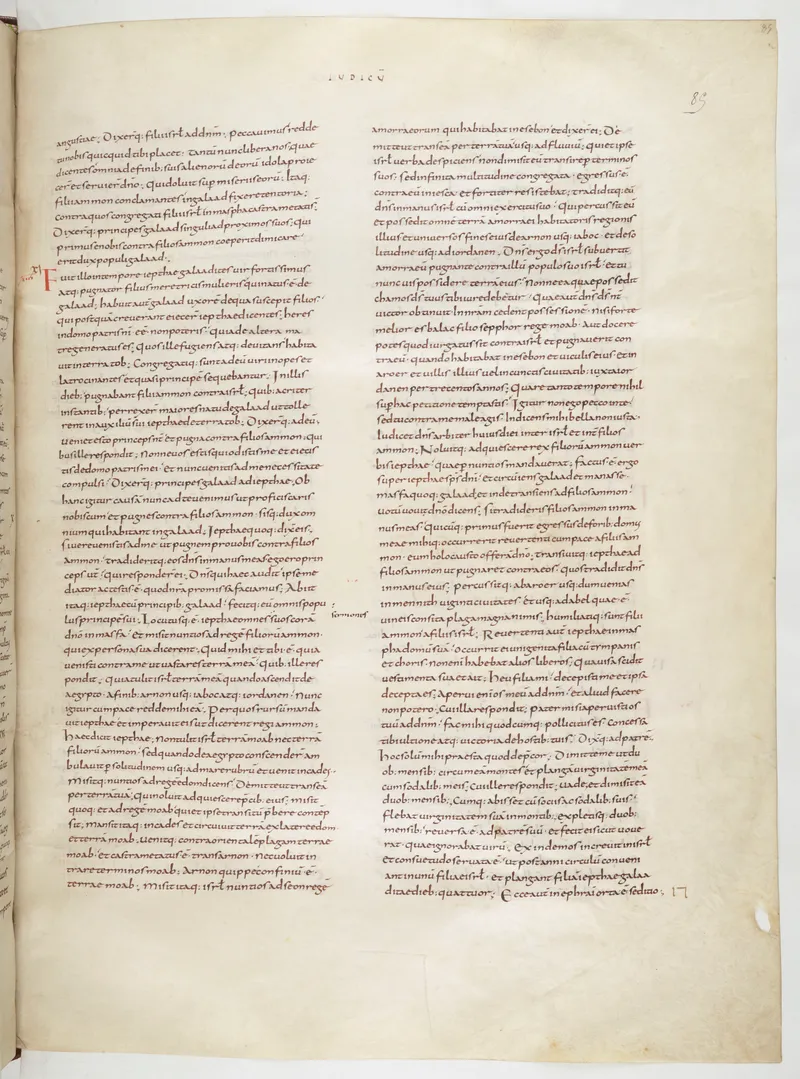 IUDICŪ
85
angustiae; Dixerq: filii isrł ad dnm; peccauimus redde
tu nobis quicquid tibi placet; Tantū nunc libera nos; quae
dicentes omnia de finib: suis alienorū deorū idola proie
cer̄ et seruier̄ dno; qui doluit sup miseriis eorū; Itaq:
filii ammon conclamantes in galaad fixere tentoria;
contra quos congregati filii isrł in maspha castrametati sͭ;
Dixerq: principes galaad singuli ad proximos suos; qui
primus e nobis contra filios ammon coeperit dimicare
erit dux populi galaad;
XI Fuit illo in tempore iepthae galaadites uir fortissimus
atq: pugnator filius meretricis mulieris qui natus ē de
galaad; habuit aut galaad uxorē de qua suscepit filios
qui postquā creuerant eiecer̄ iepthae dicentes; heres
in domo patris nri ēē non poteris; quia de altera ma
tre generatus es; Quos ille fugiens atq: deuitans habita
uit in terra tob; Congregatiq: sunt ad eū uiri inopes et
latrocinantes et quasi principē sequebantur; In illis
dieb: pugnabant filii ammon contra isrł; quib: acriter
instantib: perrexer̄ maiores natu de galaad ut tolle
rent in auxiliū sui iepthae de terra tob; Dixerq: ad eū;
ueni et esto princeps nr̄ et pugna contra filios ammon; qui
bus ille respondit; Nonne uos estis qui odistis me et eiecis
tis de domo patris mei et nunc uenistis ad me necessitate
compulsi; Dixerq: principes galaad ad iepthae; Ob
hanc igitur causā nunc ad te uenimus ut proficiscaris
nobiscum et pugnes contra filios ammon; sisq: dux om
nium qui habitant in galaad; Iepthae quoq: dixit eis;
si uere uenistis ad me ut pugnem pro uobis contra filios
ammon tradideritq: eos dns in manus meas ego ero prin
ceps ur̄; qui responder̄ ei; Dns qui haec audit ipse me
diator ac testis ē quod nra promissa faciamus; Abiit
itaq: iepthae cū principib: galaad fecitq: eū omnis popu
lus principē sui; Locutusq: ē iepthae omnes suos coram
: sermones
dno in massa et misit nuntios ad regē filiorū ammon
qui ex persona sua dicerent; Quid mihi et tibi ē quia
uenisti contra me ut uastares terrā mea; quib: ille res
pondit; quia tulit isrł terrā mea quando ascendit de
aegypto a finib: arnon usq: iaboc atq: iordanen; Nunc
igitur cum pace redde mihi eā; Per quos rursū manda
uit iepthae et imperauit eis ut dicerent regi ammon;
haec dicit iepthae; non tulit isrł terrā moab nec terrā
filiorū ammon sed quando de aegypto conscenderam
bulauit p solitudinem usq: ad mare rubrū et uenit in cades;
Misitq: nuntios ad regē edom dicens; Dimitte ut transeā
per terrā tuā; qui noluit adquiescere pcib: eius; misit
quoq: et ad regē moab qui et ipse transitū pbere contep
sit; mansit itaq: in cades et circuiuit terrā ex latere edom
et terrā moab; uenitq: contra orientalē plagam terrae
moab et castrametatus ē trans arnon nec uoluit in
trare terminos moab; Arnon quippe confiniū ē
terrae moab; Misit itaq: isrł nuntios ad seon regē
amorraeorum qui habitabat in esebon et dixer̄ ei; Di
mitte ut transeā per terrā tuā usq: ad fluuiū; qui et ipse
isrł uerba despiciens non dimisit eū transire p terminos
suos sed infinita multitudine congregata egressus ē
contra eū in iesa et fortiter resistebat; tradiditq: eū
dns in manus isrł cū omni exercitu suo; Qui percussit eū
et possedit omnē terrā amorraei habitatoris regionis
illius et uniuersos fines eius de arnon usq: iaboc et de so
litudine usq: ad iordanen; Dns ergo ds isrł subuertit
amorraeū pugnante contra illū populo suo isrł et tu
nunc uis possidere terrā eius; Nonne ea quae possedit
chamos ds tuus tibi iure debetur; Quae aut dns ds nr̄
uictor obtinuit in nram cedent possessionē; nisi forte
melior es balac filio sepphor rege moab; Aut docere
potes quod iurgatus sit contra isrł et pugnauerit con
tra eū quando habitabat in esebon et uiculis eius et in
aroer et uillis illius uel in cunctis ciuitatib: iuxta ior
danen per trecentos annos; Quare tanto tempore nihil
sup hac petitione temptastis; Igitur non ego pecco in te
sed tu contra me male agis; Indicens mihi bella non iusta;
Iudicet dns arbiter huius diei inter isrł et int filios
ammon; Noluitq: adquiescere rex filiorū ammon uer
bis iepthae quae p nuntios mandauerat; factus ē ergo
super iepthae sps dni et circuiens galaad et manasse
maspha quoq: galaad et inde transiens ad filios ammon
uotū uouit dno dicens; si tradideris filios ammon in ma
nus meas; Quicūq: primus fuerit egressus de forib: domu
meae mihiq: occurrerit reuertenti cum pace a filiis am
mon eum holocaustō offerā dno; transiuitq: iepthae ad
filios ammon ut pugnaret contra eos quos tradidit dns
in manus eius; percussitq: ab aroer usq: dum uenias
in mennith uiginti ciuitates et usq: ad abel quae ē
uineis consita plaga magna nimis; humiliatiq: sunt filii
ammon a filiis isrł; Reuertenti aut iepthae in mas
pha domū suā occurrit ei unigenita filia cū tympanis
et choris non eni habebat alios liberos; Qua uisa scidit
uestimenta sua et ait; heu filia mi decepisti me et ipsa
decepta es; Aperui eni os meū ad dnm et aliud facere
non potero; Cui illa respondit; pater mi si aperuisti os
tuū ad dnm fac mihi quodcumq: pollicitus es; Concessa
tibi ultione atq: uictoria de hostib: tuis; Dixitq: ad patrē;
hoc solū mihi praesta quod depcor; Dimitte me ut du
ob: mensib: circumeā montes et plangā uirginitatē meā
cum sodalib: meis; Cui ille respondit; uade; et dimisit eā
duob: mensib; Cumq: abisset cū sociis ac sodalib: suis
flebat uirginitatem suā in montib; expletisq: duob:
mensib: reuersa ē ad patrē suū et fecit ei sicut uoue
rat quae ignorabat uirū; Ex inde mos increuit in isrł
et consuetudo seruata ē ut post anni circulū conueni
ant in unū filiae isrł et plangant filiā iepthae galaa
ditae dieb: quattuor; Ecce aut in ephraī orta ē seditio;